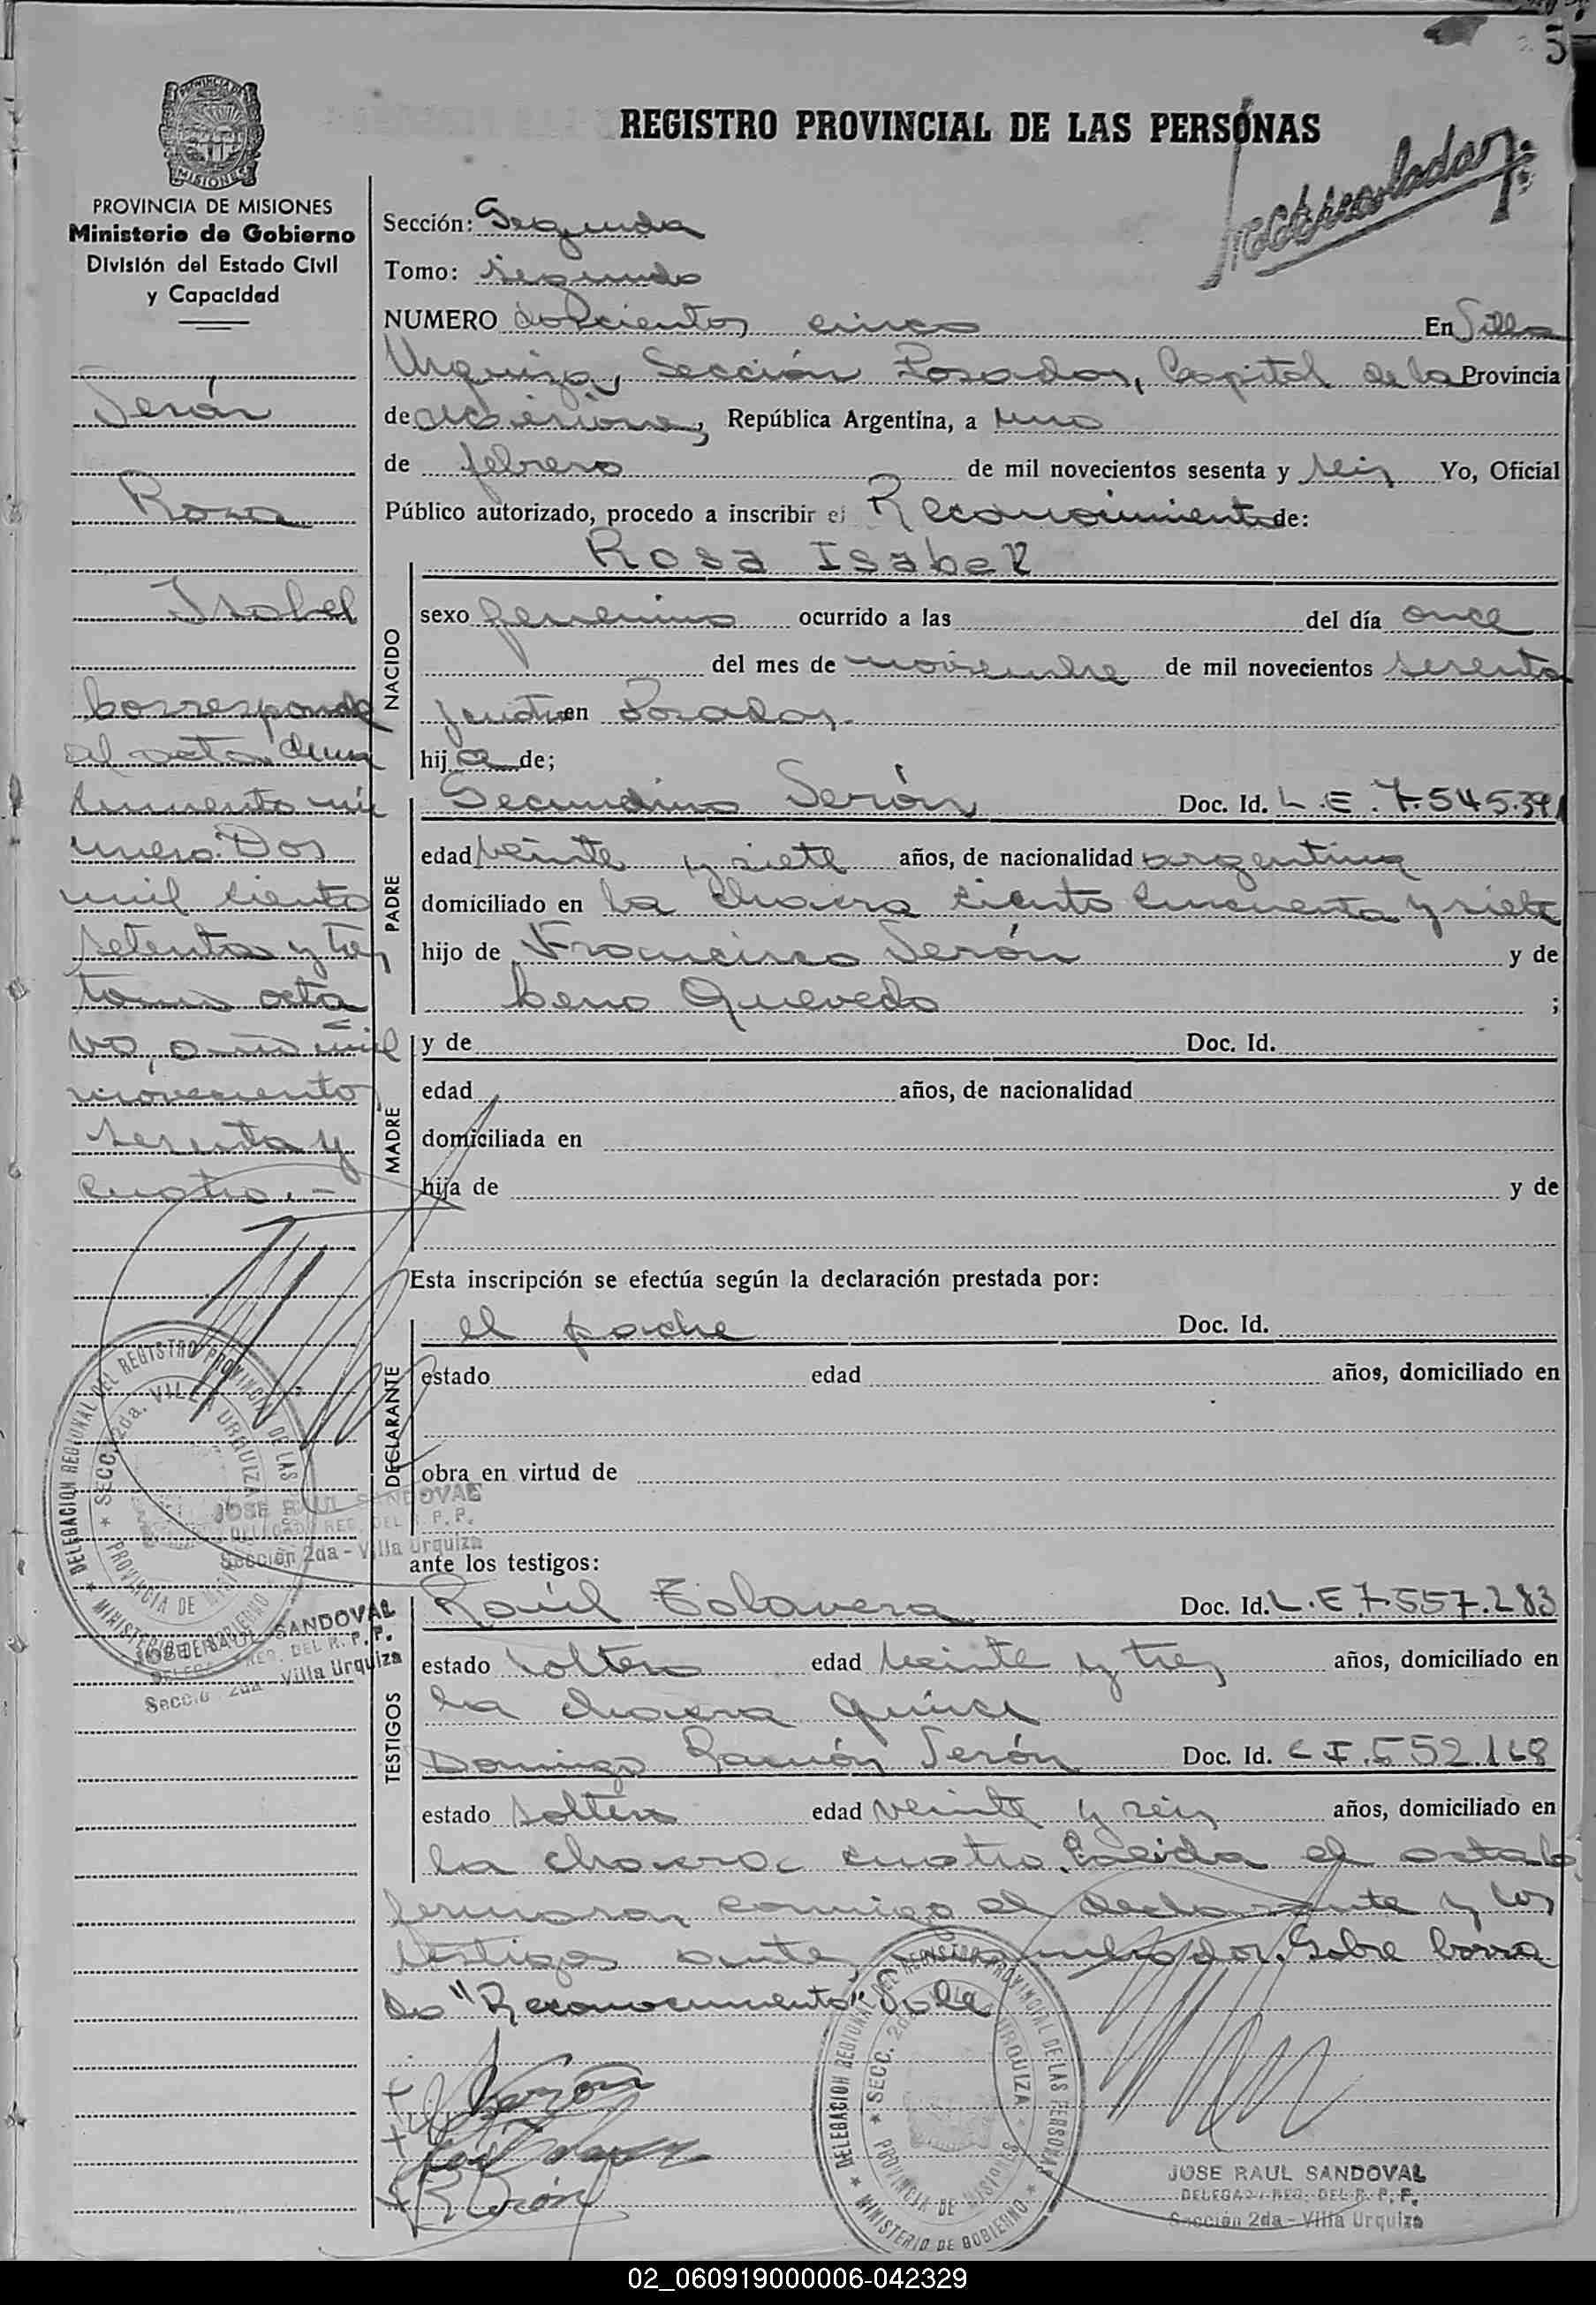 5
REGISTRO PROVINCIAL DE LAS PERSONAS
Matriculada
PROVINCIA DE MISIONES
Ministerio de Gobierno
División del Estado Civil
y Capacidad
Serón
Rosa
Isabel
Corresponde
al acta
mil ciento
setenta y tres
tomo octa
vo, año mil
novecientos
sesenta y
cuatro.-
Sección: Segunda
Tomo: segundo
NUMERO doscientos cinco En Villa
Urquiza, Sección Posadas, Capital de la Provincia
de Misiones, República Argentina, a uno
de febrero de mil novecientos sesenta y seis Yo, Oficial
Público autorizado, procedo a inscribir el Reconocimiento de:
Rosa Isabel
NACIDO
sexo femenino ocurrido a las del día once
del mes de noviembre de mil novecientos sesenta
y cuatro en Posadas.
hija de;
PADRE
Secundino Serón Doc. Id. L.E. 7.545.391
edad veinte y siete años, de nacionalidad argentina
domiciliado en la chacra ciento cincuenta y siete
hijo de Francisco Serón y de
Quevedo ;
MADRE
y de Doc. Id.
edad años, de nacionalidad
domiciliada en
hija de y de
Esta inscripción se efectúa según la declaración prestada por:
DECLARANTE
el padre Doc. Id.
estado edad años, domiciliado en
obra en virtud de
ante los testigos:
TESTIGOS
Raúl Talavera Doc. Id. L.E 7.557.283
estado soltero edad veinte y tres años, domiciliado en
la chacra quince
Domingo Ramón Serón Doc. Id. C.I. 552.168
estado soltero edad veinte y seis años, domiciliado en
la chacra cuatro. Leída el acta la
firmaron conmigo el declarante y los
testigos antes nombrados. Sobre borra
do "Reconocimiento" Vale
DELEGACION REGIONAL DEL REGISTRO PROVINCIAL DE LAS PERSONAS
SECC. 2da. VILLA URQUIZA
PROVINCIA DE MISIONES
MINISTERIO DE GOBIERNO
JOSE RAUL SANDOVAL
DELEGADO REG. DEL R. P. P.
Sección 2da - Villa Urquiza
JOSE RAUL SANDOVAL
DELEGADO REG. DEL R. P. P.
Sección 2da - Villa Urquiza
DELEGACION REGIONAL DEL REGISTRO PROVINCIAL DE LAS PERSONAS
SECC. 2da. VILLA URQUIZA
PROVINCIA DE MISIONES
MINISTERIO DE GOBIERNO
JOSE RAUL SANDOVAL
DELEGADO REG. DEL R. P. P.
Sección 2da - Villa Urquiza
02_060919000006-042329